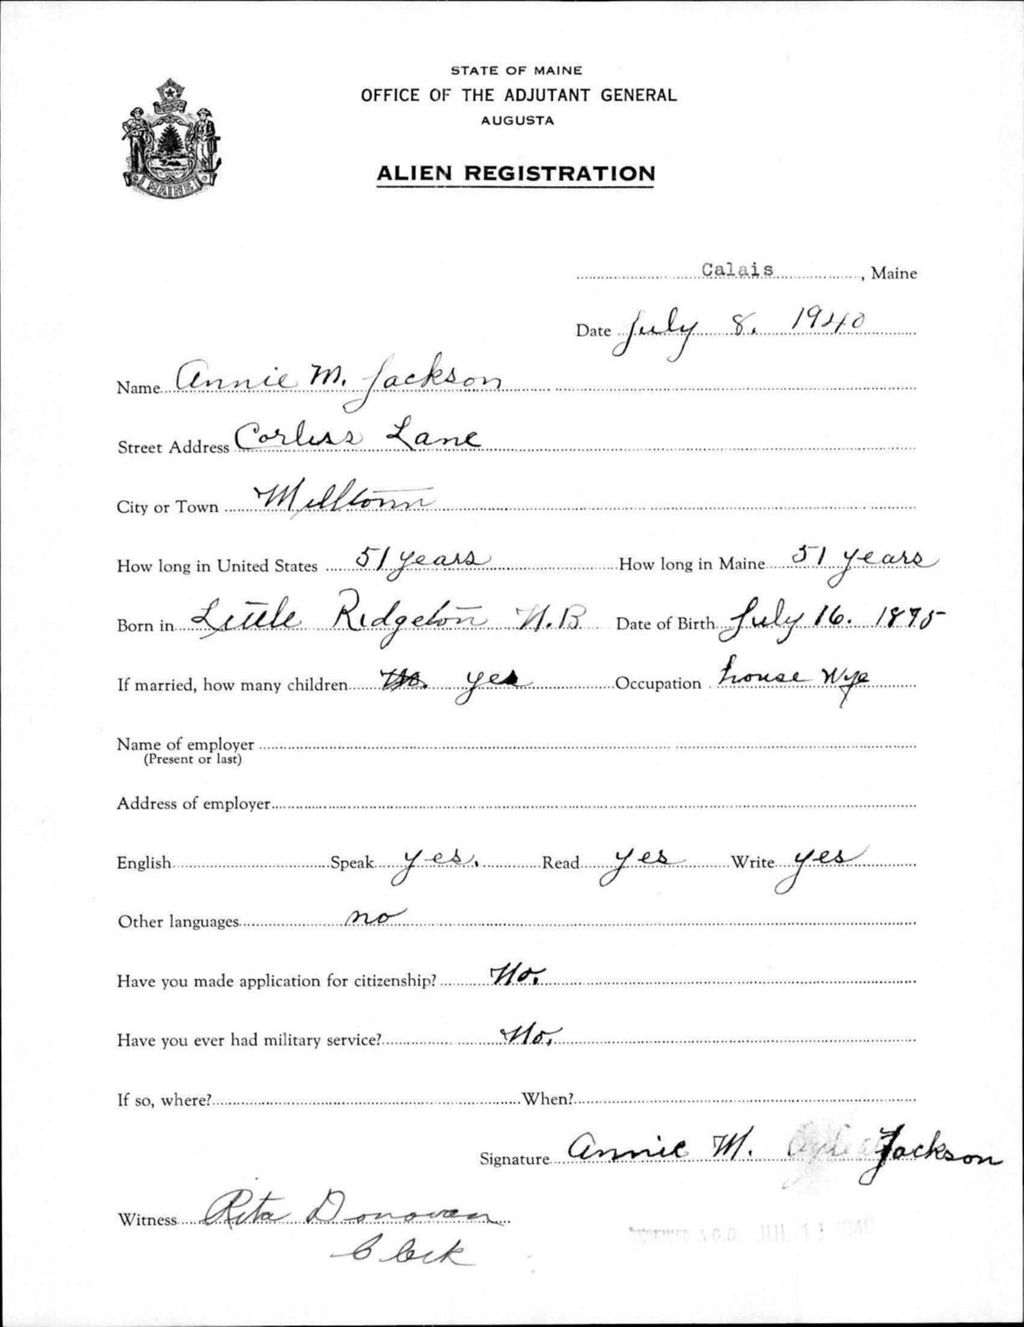 STATE OF MAINE
OFFICE OF THE ADJUTANT GENERAL
AUGUSTA
ALIEN REGISTRATION
MAINE
Calais, Maine
Date July 8. 1940
Name Annie M. Jackson
Street Address Corliss Lane
City or Town Milltown
How long in United States 51 years How long in Maine 51 years
Born in Little Ridgeton N.B Date of Birth July 16. 1875
If married, how many children No. yes Occupation house Wife
Name of employer
(Present or last)
Address of employer
English Speak yes. Read yes Write yes
Other languages no
Have you made application for citizenship? No.
Have you ever had military service? No.
If so, where? When?
Signature Annie M. Jackson
Witness Rita Donovan
Clerk
A.G.O. JUL 1940